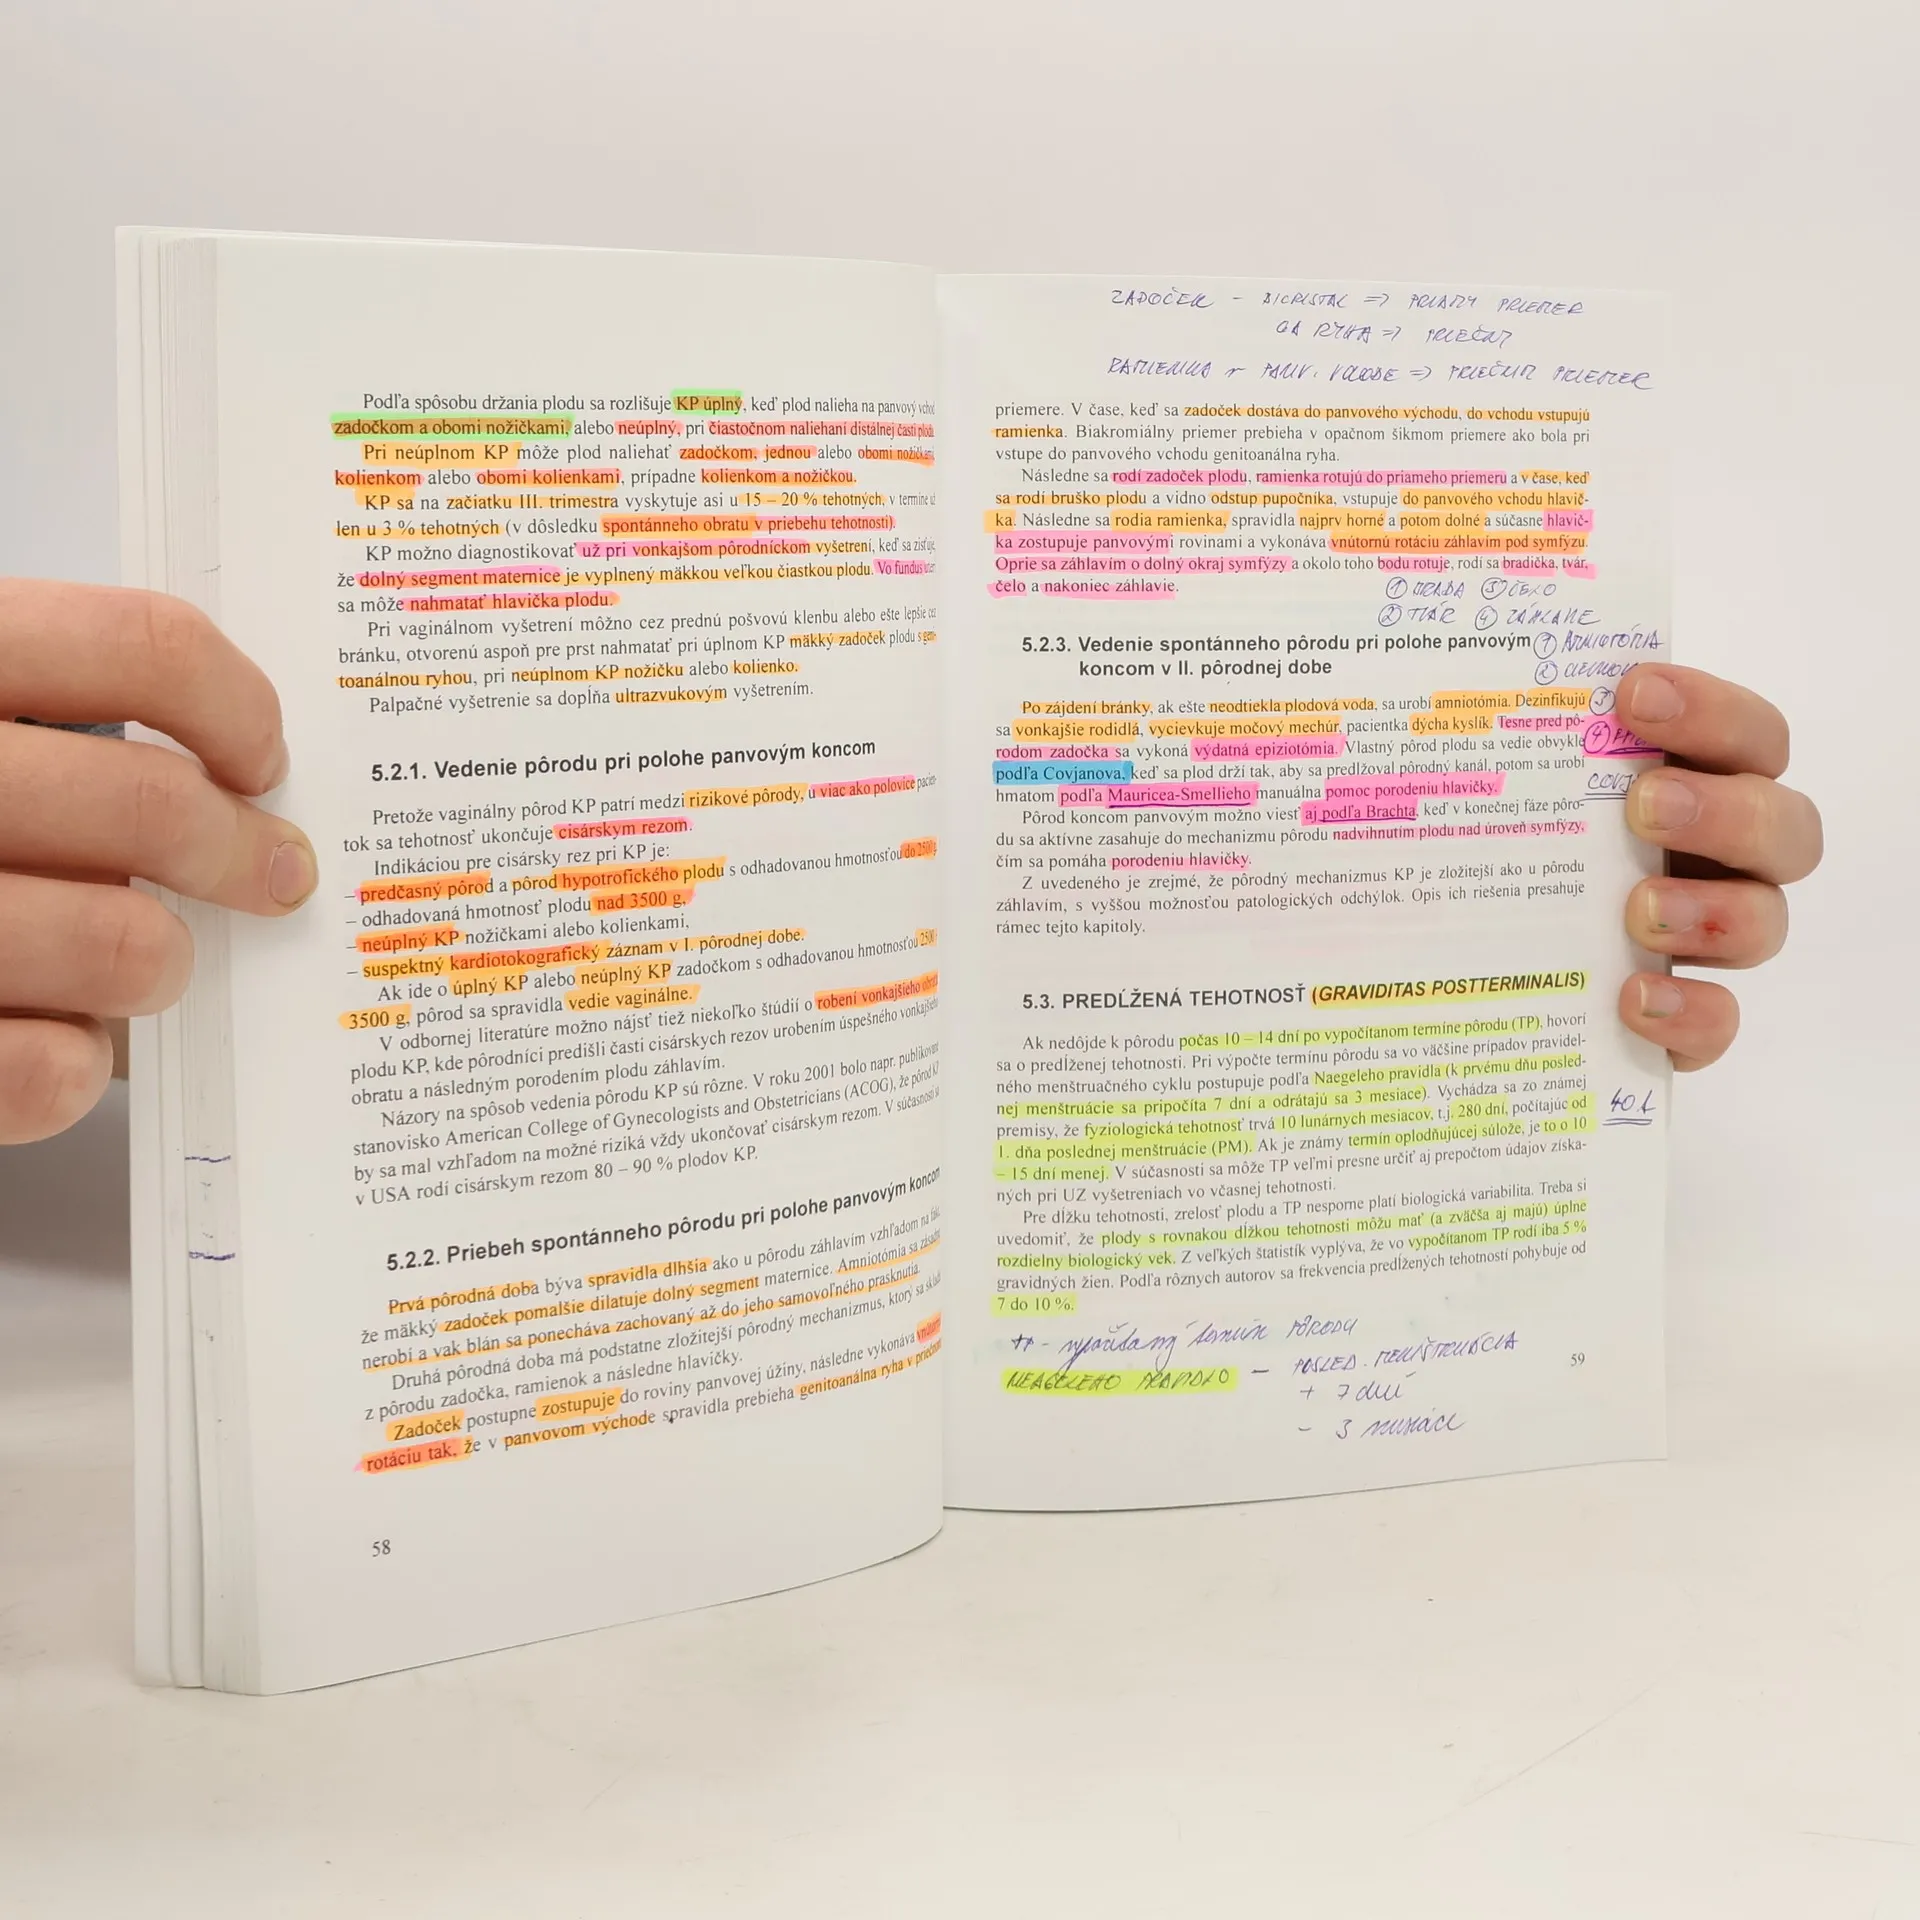 Podľa spôsobu držania plodu sa rozlišuje KP úplný, keď plod nalieha na panvový vchod
zadočkom a obomi nožičkami, alebo neúplný, pri čiastočnom naliehaní distálnej časti plodu.
Pri neúplnom KP môže plod naliehať zadočkom, jednou alebo obomi nožičkami,
kolienkom alebo obomi kolienkami, prípadne kolienkom a nožičkou.
KP sa na začiatku III. trimestra vyskytuje asi u 15 – 20 % tehotných, v termíne už
len u 3 % tehotných (v dôsledku spontánneho obratu v priebehu tehotnosti).
KP možno diagnostikovať už pri vonkajšom pôrodníckom vyšetrení, keď sa zisťuje,
že dolný segment maternice je vyplnený mäkkou veľkou čiastkou plodu. Vo fundus
sa môže nahmatať hlavička plodu.
Pri vaginálnom vyšetrení môžno cez prednú pošvovú klenbu alebo ešte lepšie cez
bránku, otvorenú aspoň pre prst nahmatať pri úplnom KP mäkký zadoček plodu s geni-
toanálnou ryhou, pri neúplnom KP nožičku alebo kolienko.
Palpačné vyšetrenie sa dopĺňa ultrazvukovým vyšetrením.
5.2.1. Vedenie pôrodu pri polohe panvovým koncom
Pretože vaginálny pôrod KP patrí medzi rizikové pôrody, u viac ako polovice pacien-
tok sa tehotnosť ukončuje cisárskym rezom.
Indikáciou pre cisársky rez pri KP je:
– predčasný pôrod a pôrod hypotrofického plodu s odhadovanou hmotnosťou do 2500 g,
– odhadovaná hmotnosť plodu nad 3500 g,
– neúplný KP nožičkami alebo kolienkami,
– suspektný kardiotokografický záznam v I. pôrodnej dobe.
Ak ide o úplný KP alebo neúplný KP zadočkom s odhadovanou hmotnosťou 2500
3500 g, pôrod sa spravidla vedie vaginálne.
V odbornej literatúre možno nájsť tiež niekoľko štúdií o robení vonkajšieho obratu
plodu KP, kde pôrodníci predišli časti cisárskych rezov urobením úspešného vonkajšieho
obratu a následným porodením plodu záhlavím.
Názory na spôsob vedenia pôrodu KP sú rôzne. V roku 2001 bolo napr. publikované
stanovisko American College of Gynecologists and Obstetricians (ACOG), že pôrod KP
by sa mal vzhľadom na možné riziká vždy ukončovať cisárskym rezom. V súčasnosti sa
v USA rodí cisárskym rezom 80 – 90 % plodov KP.
5.2.2. Priebeh spontánneho pôrodu pri polohe panvovým koncom
Prvá pôrodná doba býva spravidla dlhšia ako u pôrodu záhlavím vzhľadom na fakt,
že mäkký zadoček pomalšie dilatuje dolný segment maternice. Amniotómia sa zásadne
nerobí a vak blán sa ponecháva zachovaný až do jeho samovoľného prasknutia.
Druhá pôrodná doba má podstatne zložitejší pôrodný mechanizmus, ktorý sa skladá
z pôrodu zadočka, ramienok a následne hlavičky.
Zadoček postupne zostupuje do roviny panvovej úžiny, následne vykonáva vnútornú
rotáciu tak, že v panvovom východe spravidla prebieha genitoanálna ryha v priečnom
58
ZADOČEK – BICRISTAL => PRIAMY PRIEMER
GA RYHA => PRIEČNY
RAMIENKA v PANV. VCHODE => PRIEČNY PRIEMER
priemere. V čase, keď sa zadoček dostáva do panvového východu, do vchodu vstupujú
ramienka. Biakromiálny priemer prebieha v opačnom šikmom priemere ako bola pri
vstupe do panvového vchodu genitoanálna ryha.
Následne sa rodí zadoček plodu, ramienka rotujú do priameho priemeru a v čase, keď
sa rodí bruško plodu a vidno odstup pupočníka, vstupuje do panvového vchodu hlavič-
ka. Následne sa rodia ramienka, spravidla najprv horné a potom dolné a súčasne hlavič-
ka zostupuje panvovými rovinami a vykonáva vnútornú rotáciu záhlavím pod symfýzu.
Oprie sa záhlavím o dolný okraj symfýzy a okolo toho bodu rotuje, rodí sa bradička, tvár,
čelo a nakoniec záhlavie.
① BRADA ③ ČELO
② TVÁR ④ ZÁHLAVIE
5.2.3. Vedenie spontánneho pôrodu pri polohe panvovým
koncom v II. pôrodnej dobe
① AMNIOTÓMIA
②
Po zájdení bránky, ak ešte neodtiekla plodová voda, sa urobí amniotómia. Dezinfikujú ③
sa vonkajšie rodidlá, vycievkuje močový mechúr, pacientka dýcha kyslík. Tesne pred pô-
rodom zadočka sa vykoná výdatná epiziotómia. Vlastný pôrod plodu sa vedie obvykle ④
podľa Covjanova, keď sa plod drží tak, aby sa predlžoval pôrodný kanál, potom sa urobí
hmatom podľa Mauricea-Smellieho manuálna pomoc porodeniu hlavičky.
Pôrod koncom panvovým možno viesť aj podľa Brachta, keď v konečnej fáze pôro-
du sa aktívne zasahuje do mechanizmu pôrodu nadvihnutím plodu nad úroveň symfýzy,
čím sa pomáha porodeniu hlavičky.
Z uvedeného je zrejmé, že pôrodný mechanizmus KP je zložitejší ako u pôrodu
záhlavím, s vyššou možnosťou patologických odchýlok. Opis ich riešenia presahuje
rámec tejto kapitoly.
5.3. PREDĹŽENÁ TEHOTNOSŤ (GRAVIDITAS POSTTERMINALIS)
Ak nedôjde k pôrodu počas 10 – 14 dní po vypočítanom termíne pôrodu (TP), hovorí
sa o predĺženej tehotnosti. Pri výpočte termínu pôrodu sa vo väčšine prípadov pravidel-
ného menštruačného cyklu postupuje podľa Naegeleho pravidla (k prvému dňu posled-
nej menštruácie sa pripočíta 7 dní a odrátajú sa 3 mesiace). Vychádza sa zo známej
premisy, že fyziologická tehotnosť trvá 10 lunárnych mesiacov, t.j. 280 dní, počítajúc od
1. dňa poslednej menštruácie (PM). Ak je známy termín oplodňujúcej súlože, je to o 10
– 15 dní menej. V súčasnosti sa môže TP veľmi presne určiť aj prepočtom údajov získa-
ných pri UZ vyšetreniach vo včasnej tehotnosti.
40.t
Pre dĺžku tehotnosti, zrelosť plodu a TP nesporne platí biologická variabilita. Treba si
uvedomiť, že plody s rovnakou dĺžkou tehotnosti môžu mať (a zväčša aj majú) úplne
rozdielny biologický vek. Z veľkých štatistík vyplýva, že vo vypočítanom TP rodí iba 5 %
gravidných žien. Podľa rôznych autorov sa frekvencia predĺžených tehotností pohybuje od
7 do 10 %.
TP – vypočítaný termín PÔRODU
NEAGELEHO PRAVIDLO – POSLED. MENŠTRUÁCIA
+ 7 dní
– 3 mesiace
59